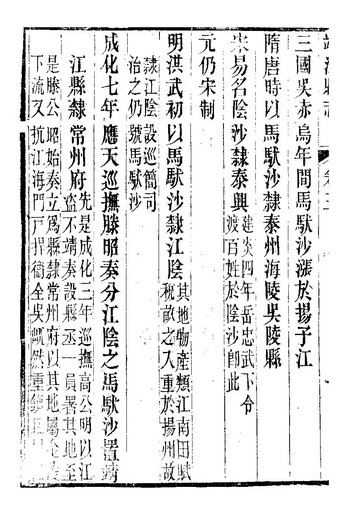 靖江縣志 卷三
三國吳赤烏年間馬馱沙漲於揚子江
隋唐時以馬馱沙隸泰州海陵吳陵縣
宋易名陰沙隸泰興
建炎四年岳忠武下令
渡百姓於陰沙卽此
元仍宋制
明洪武初以馬馱沙隸江陰
其地物產類江南田賦
稅畝之入重於揚州故
隸江陰設巡簡司
治之仍號馬馱沙
成化七年應天巡撫滕昭奏分江陰之馬馱沙置靖
江縣隸常州府
先是成化三年巡撫高公明以江
盜不靖奏設縣丞一員署其地至
是滕公昭始奏立爲縣隸常州府以其地屬全吳
下流又抗江海門戶捍衛全吳巍然重鎮